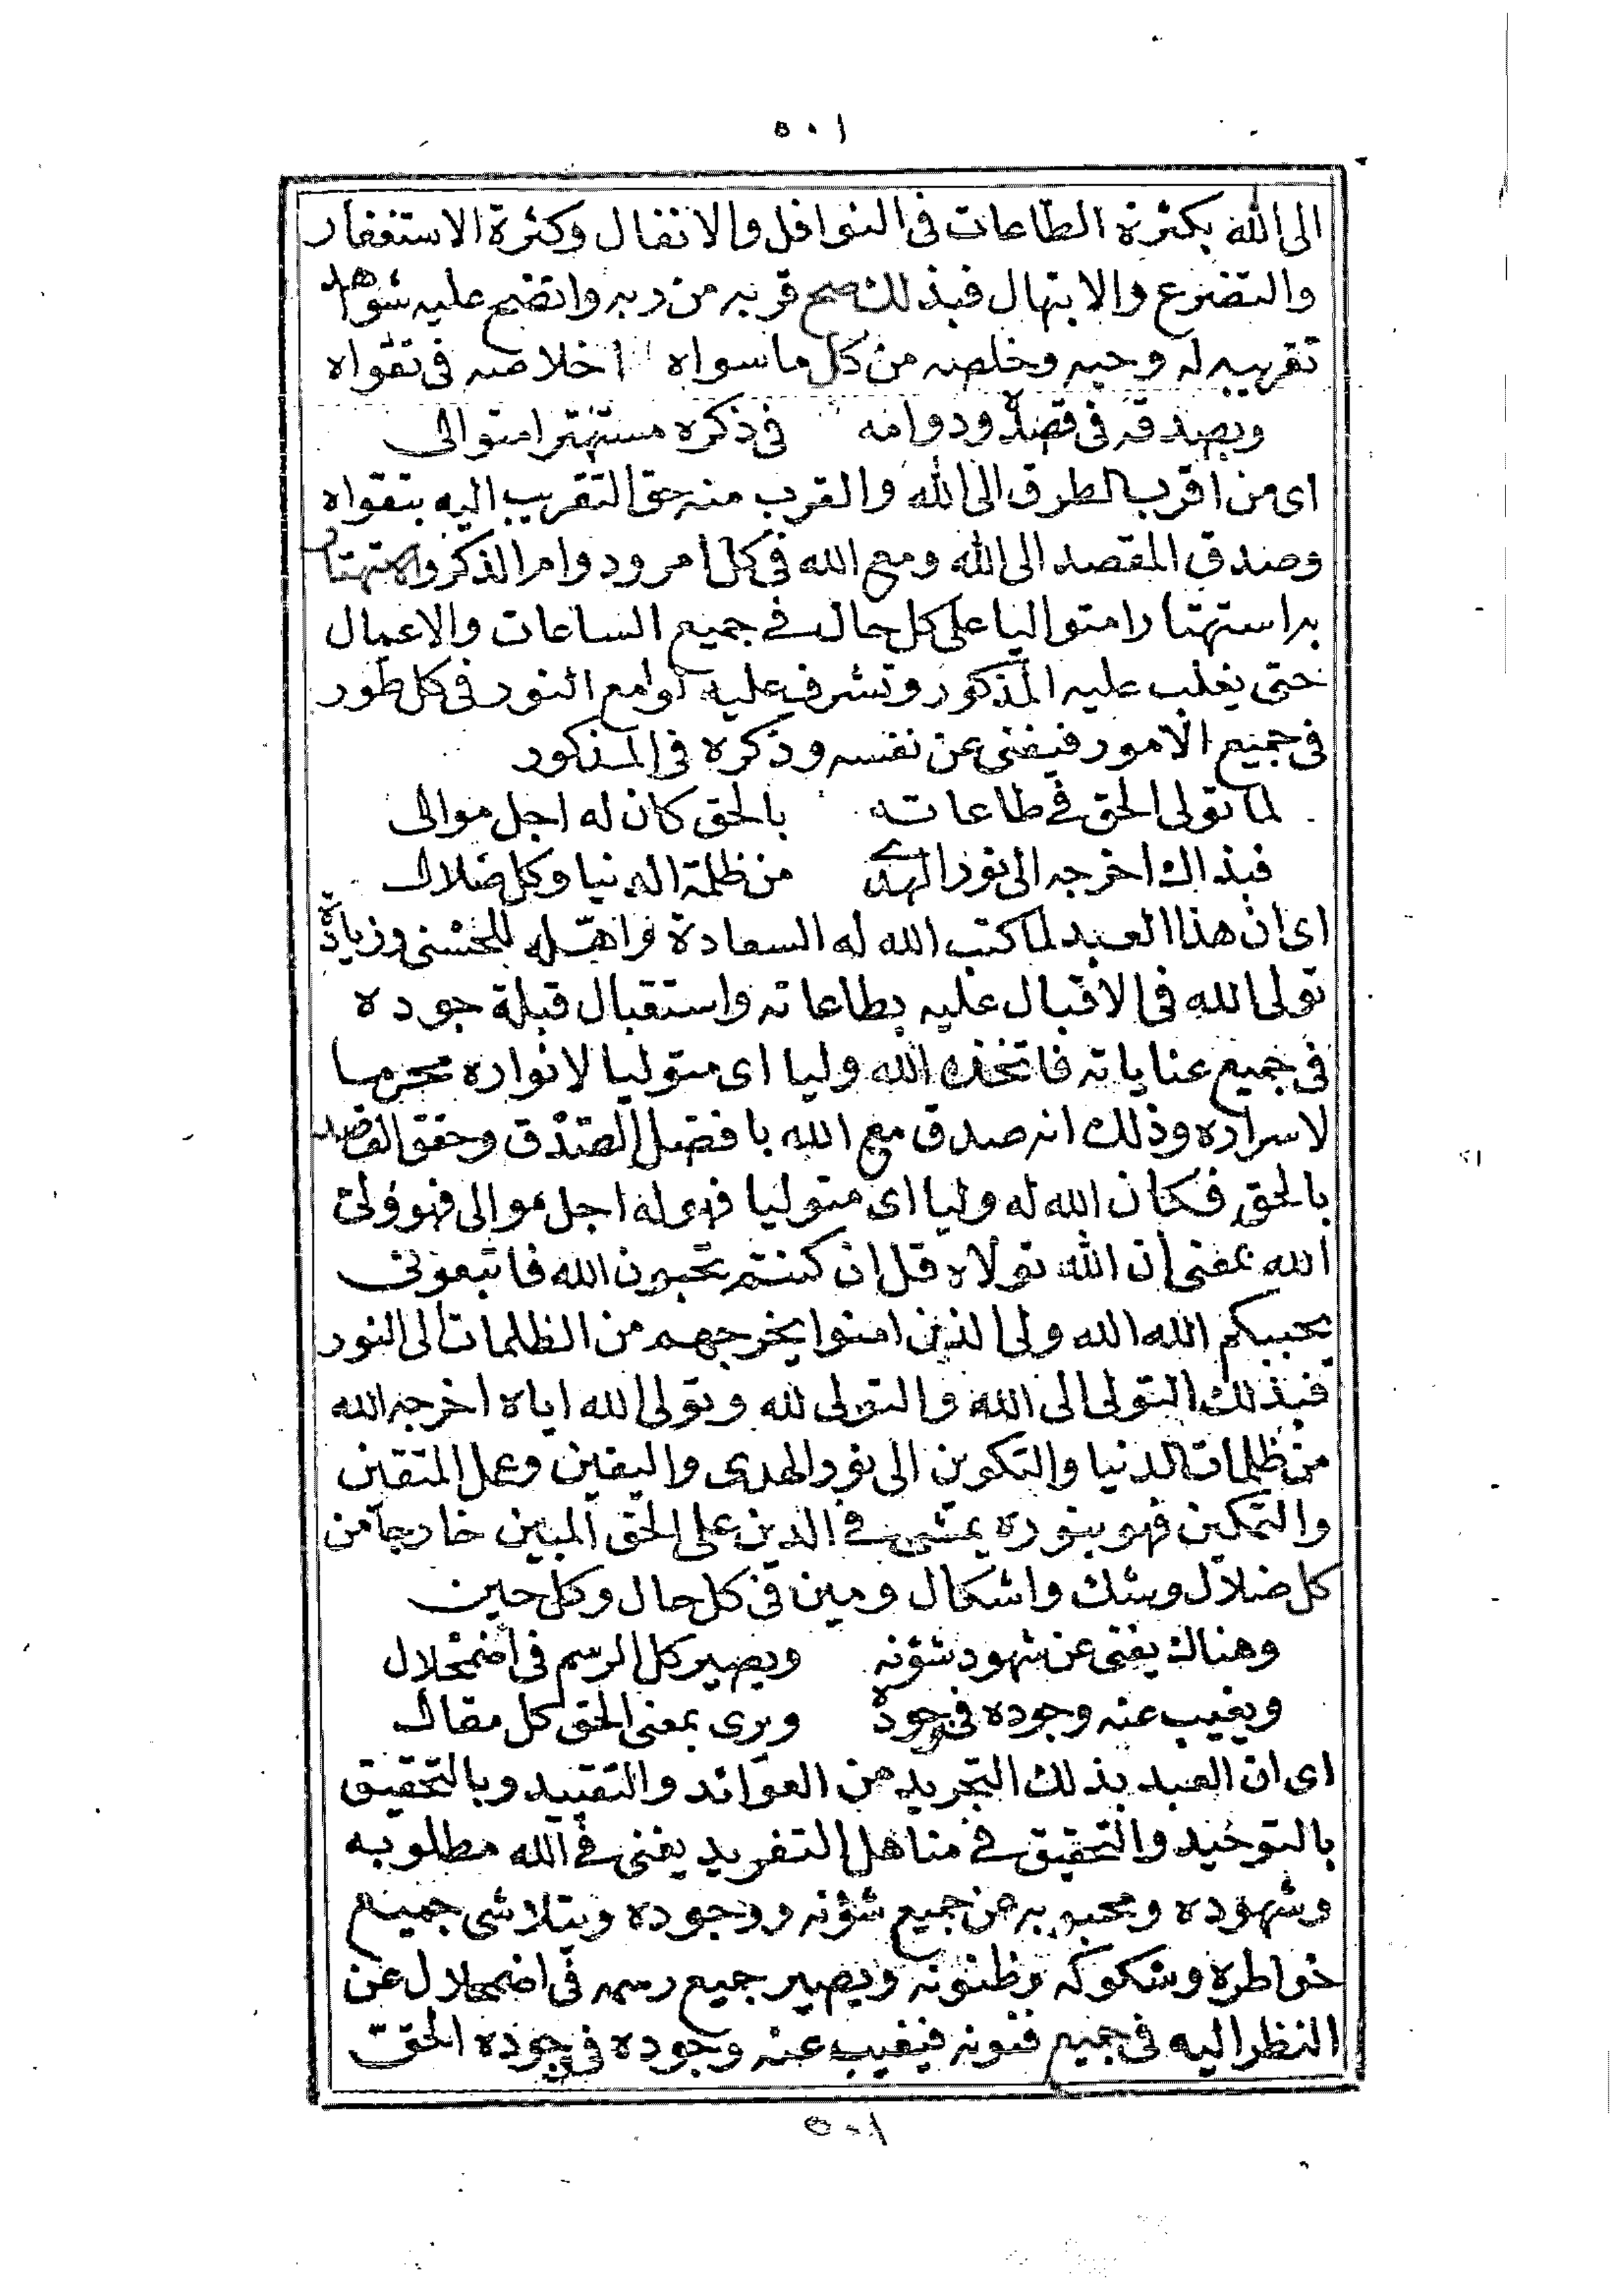 ٥٠١
الى الله بكثرة الطاعات فى النوافل والانفال وكثرة الاستغفار
والتضرع والابتهال فبذلك صح قربه من ربه واتضح عليه شواهد
تقريبه له وحبه وخلصه من كل ما سواه اخلاصه فى تقواه
وبصدقه فى قصده ودوامه فى ذكره مستهترا متوالى
اى من اقرب الطرق الى الله والقرب منه حق التقريب اليه بتقواه
وصدق المقصد الى الله ومع الله فى كل امر ودوام الذكر والاستهتار
به استهتارا متواليا على كل حال فى جميع الساعات والاعمال
حتى يغلب عليه المذكور وتشرف عليه لوامع النور فى كل طور
فى جميع الامور فيفنى عن نفسه وذكره فى المذكور
لما تولى الحق فى طاعاته بالحق كان له اجل موالى
فبذاك اخرجه الى نور الهدى من ظلمة الدنيا وكل ضلال
اى ان هذا العبد لما كتب الله له السعادة واهله للحسنى وزيادة
تولى الله فى الاقبال عليه بطاعاته واستقبال قبلة جوده
فى جميع عناياته فاتخذه الله وليا اى متوليا لانواره محرما
لاسراره وذلك انه صدق مع الله بافضل الصدق وحقق القصد
بالحق فكان الله له وليا اى متوليا فهو له اجل موالى فهو ولى
الله بمعنى ان الله تولاه قل ان كنتم تحبون الله فاتبعونى
يحببكم الله الله ولى الذين امنوا يخرجهم من الظلمات الى النور
فبذلك التولى الى الله والتولى لله وتولى الله اياه اخرجه الله
من ظلمات الدنيا والتكوين الى نور الهدى واليقين وعمل المتقين
والتمكين فهو بنوره يمشى فى الدين على الحق المبين خارجا من
كل ضلال وشك واشكال ومين فى كل حال وكل حين
وهناك يفنى عن شهود شؤنه ويصير كل الرسم فى اضمحلال
ويغيب عنه وجوده فى جوده ويرى بمعنى الحق كل مقال
اى ان العبد بذلك التجريد من العوائد والتقييد وبالتحقيق
بالتوحيد والتحقيق فى مناهل التفريد يفنى فى الله مطلوبه
وشهوده ومحبوبه من جميع شؤنه ووجوده ويتلاشى جميع
خواطره وشكوكه وظنونه ويصير جميع رسمه فى اضمحلال عن
النظر اليه فى جميع فنونه فيغيب عنه وجوده فى جوده الحق
٥٠١